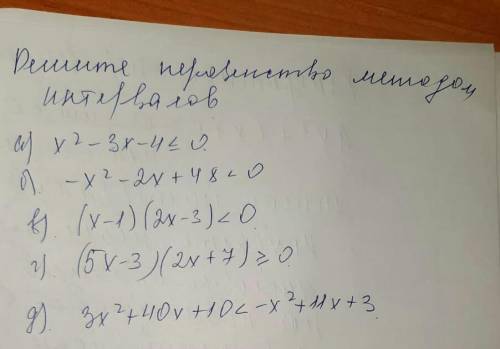 Решите неравенство методом
интервалов
а) x² - 3x - 4 ≤ 0.
б). -x² - 2x + 48 < 0
в). (x-1)(2x-3) < 0.
г). (5x-3)(2x+7) ≥ 0.
д). 3x² + 40x + 10 < -x² + 11x + 3.